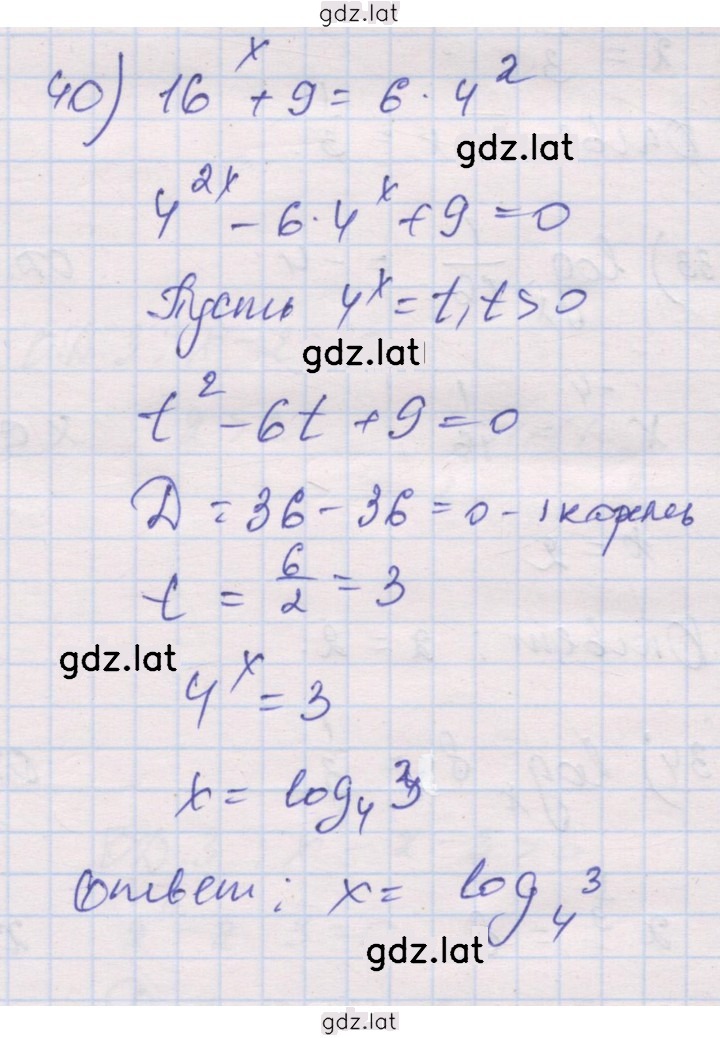 gdz.lat
40) 16^x + 9 = 6 · 4^2
gdz.lat
4^{2x} - 6 · 4^x + 9 = 0
Пусть 4^x = t, t > 0
gdz.lat
t^2 - 6t + 9 = 0
D = 36 - 36 = 0 - 1 корень
t = 6/2 = 3
gdz.lat
4^x = 3
x = log_4 3
Ответ: x = log_4 3
gdz.lat
gdz.lat